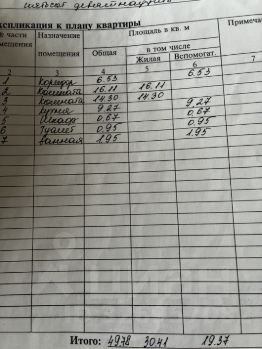 Экспликация к плану квартиры
№ части помещения Назначение помещения Площадь в кв. м Примеча
Общая в том числе
Жилая Вспомогат.
2 3 4 5 6 7
1 Коридор 6.53 6.53
2 Комната 16.11 16.11
3 Комната 14.30 14.30
4 Кухня 9.27 9.27
5 Шкаф 0,67 0.67
6 Туалет 0,95 0.95
7 Ванная 1.95 1.95
Итого: 49.78 30.41 19.37